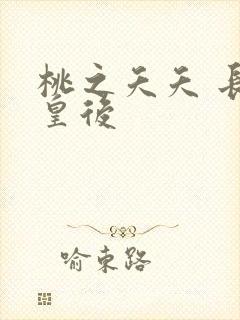 桃之夭夭 長
皇後
喻東路